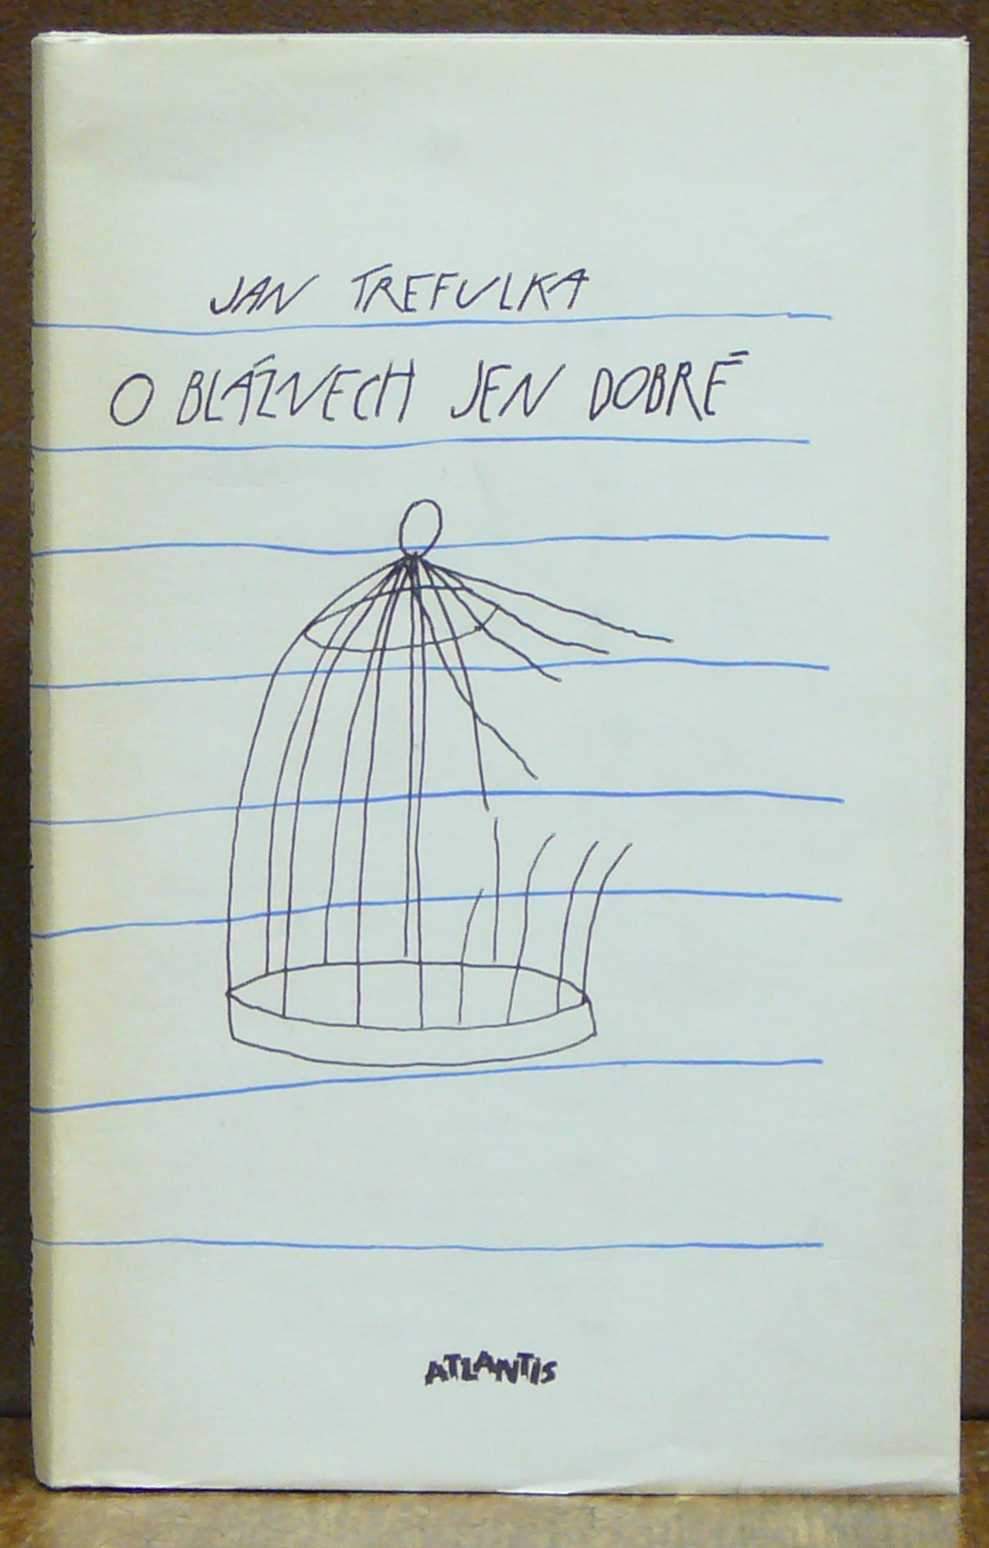 JAN TREFULKA
O BLÁZNECH JEN DOBRÉ
ATLANTIS